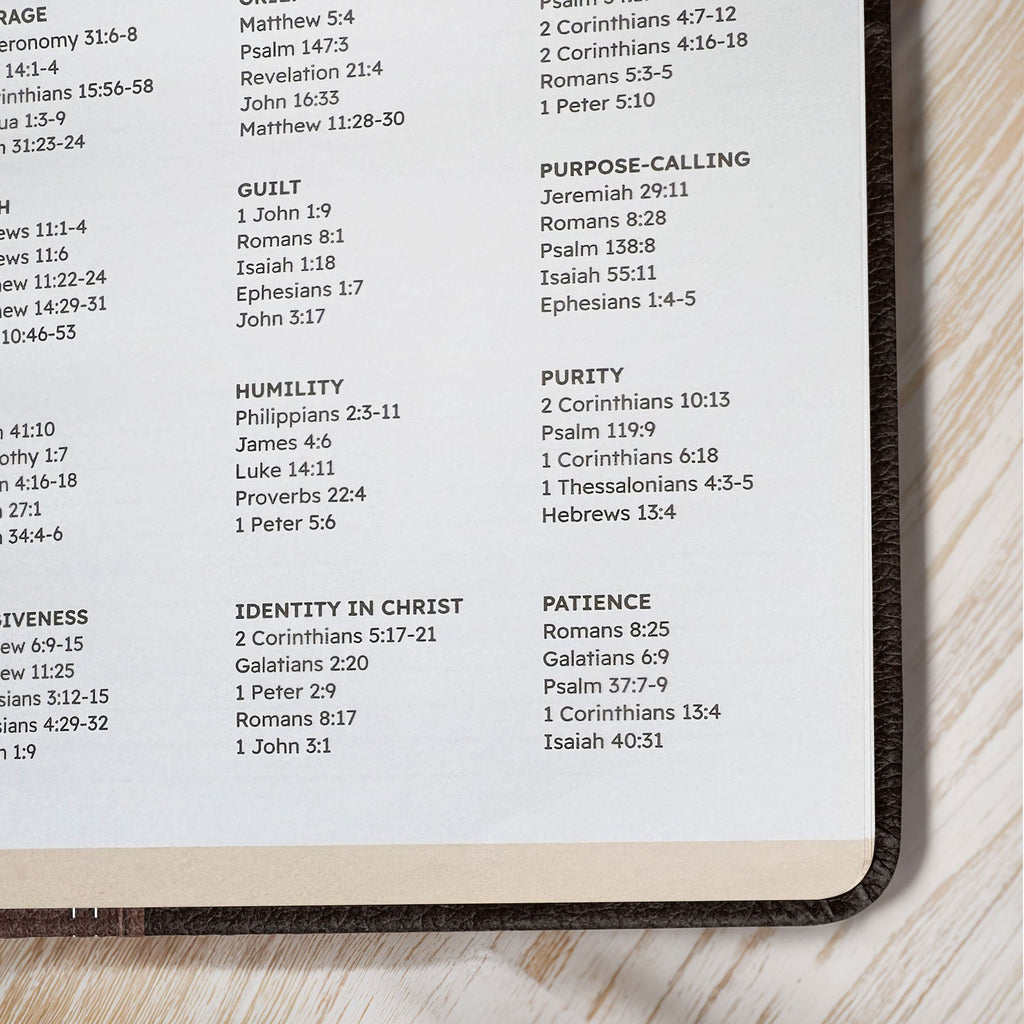 RAGE
eronomy 31:6-8
14:1-4
inthians 15:56-58
ua 1:3-9
31:23-24
H
ews 11:1-4
ews 11:6
ew 11:22-24
ew 14:29-31
10:46-53
41:10
othy 1:7
n 4:16-18
27:1
34:4-6
GIVENESS
ew 6:9-15
ew 11:25
sians 3:12-15
sians 4:29-32
n 1:9
Matthew 5:4
Psalm 147:3
Revelation 21:4
John 16:33
Matthew 11:28-30
GUILT
1 John 1:9
Romans 8:1
Isaiah 1:18
Ephesians 1:7
John 3:17
HUMILITY
Philippians 2:3-11
James 4:6
Luke 14:11
Proverbs 22:4
1 Peter 5:6
IDENTITY IN CHRIST
2 Corinthians 5:17-21
Galatians 2:20
1 Peter 2:9
Romans 8:17
1 John 3:1
2 Corinthians 4:7-12
2 Corinthians 4:16-18
Romans 5:3-5
1 Peter 5:10
PURPOSE-CALLING
Jeremiah 29:11
Romans 8:28
Psalm 138:8
Isaiah 55:11
Ephesians 1:4-5
PURITY
2 Corinthians 10:13
Psalm 119:9
1 Corinthians 6:18
1 Thessalonians 4:3-5
Hebrews 13:4
PATIENCE
Romans 8:25
Galatians 6:9
Psalm 37:7-9
1 Corinthians 13:4
Isaiah 40:31